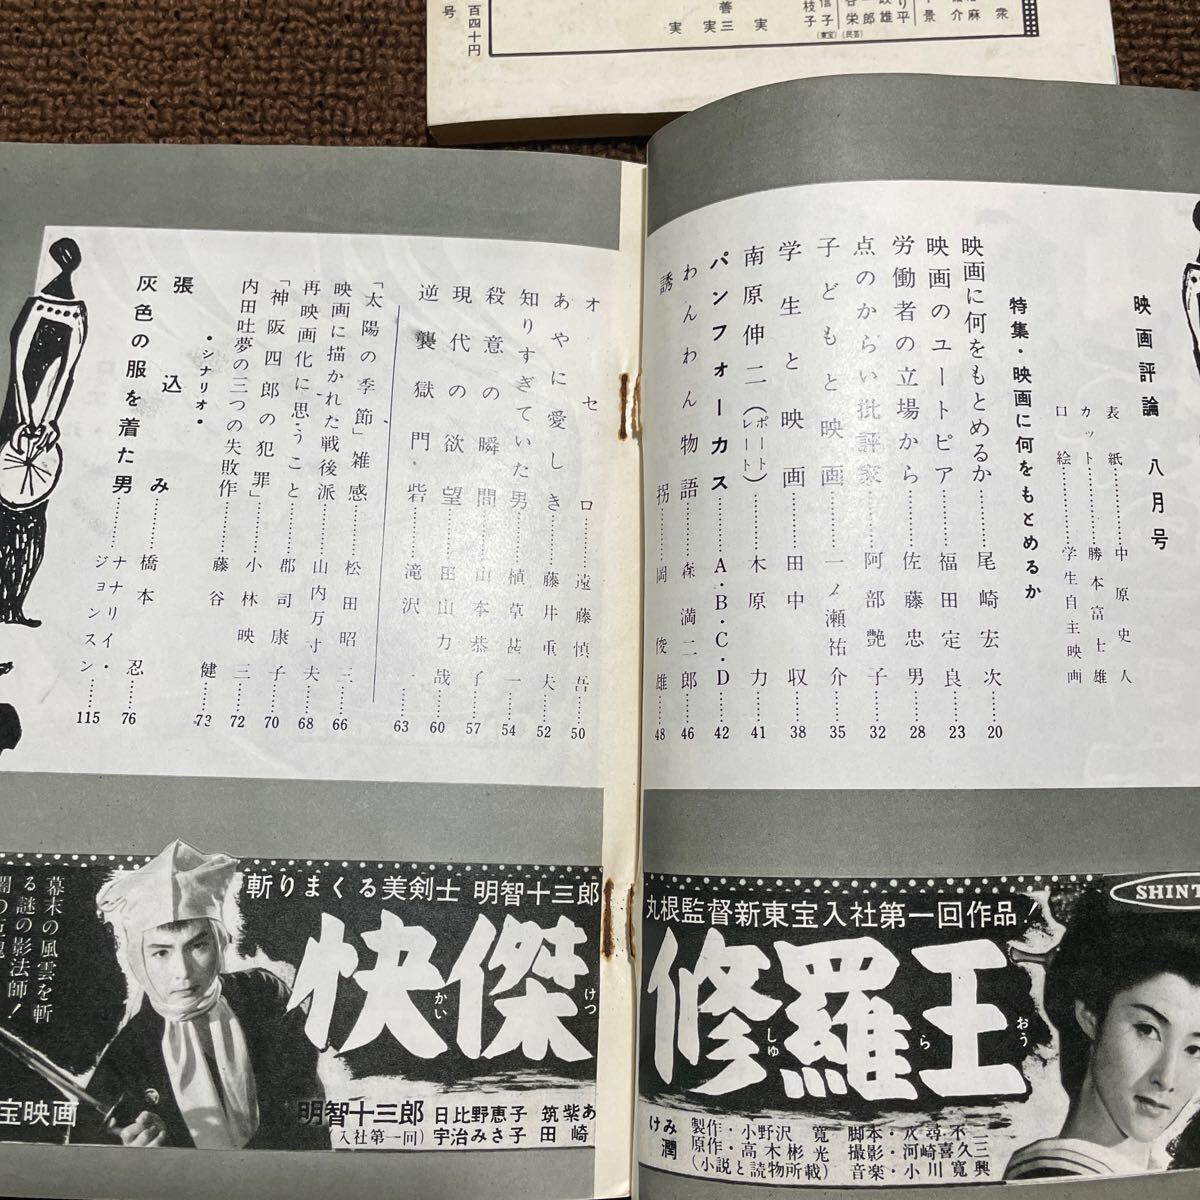 百四十円
号
善三
実
実
実
枝子
信子
谷栄
一郎
政雄
り平
(東宝)
(民芸)
景
介
麻
衆
映画評論 八月号
表紙…………中原史人
カット………勝本富士雄
口絵…………学生自主映画
特集・映画に何をもとめるか
映画に何をもとめるか……尾崎宏次…20
映画のユートピア……福田定良…23
労働者の立場から……佐藤忠男…28
点のからい批評家……阿部艶子…32
子どもと映画……一ノ瀬祐介…35
学生と映画……田中収…38
南原伸二(ポートレート)……木原力…41
パンフォーカス……A・B・C・D…42
わんわん物語……森満二郎…46
誘拐……岡俊雄…48
オセロ……遠藤慎吾…50
あやに愛しき……藤井重夫…52
知りすぎていた男……植草甚一…54
殺意の瞬間……山本恭子…57
現代の欲望……田山力哉…60
逆襲獄門砦……滝沢一…63
「太陽の季節」雑感……松田昭三…66
映画に描かれた戦後派……山内万寸夫…68
再映画化に思うこと……郡司康子…70
「神阪四郎の犯罪」……小林映三…72
内田吐夢の三つの失敗作……藤谷健…73
・シナリオ・
張込み……橋本忍…76
灰色の服を着た男……ナナリイ・ジョンスン…115
SHINT
丸根監督新東宝入社第一回作品!
斬りまくる美剣士 明智十三郎
快傑修羅王
かい けつ しゅ ら おう
幕末の風雲を斬
る謎の影法師!
宝映画
明智十三郎
(入社第一回)
日比野恵子 筑紫あけみ
宇治みさ子 田崎潤
製作・小野沢寛
原作・高木彬光
(小説と読物所載)
脚本・八尋不二
撮影・河崎喜久三
音楽・小川寛興